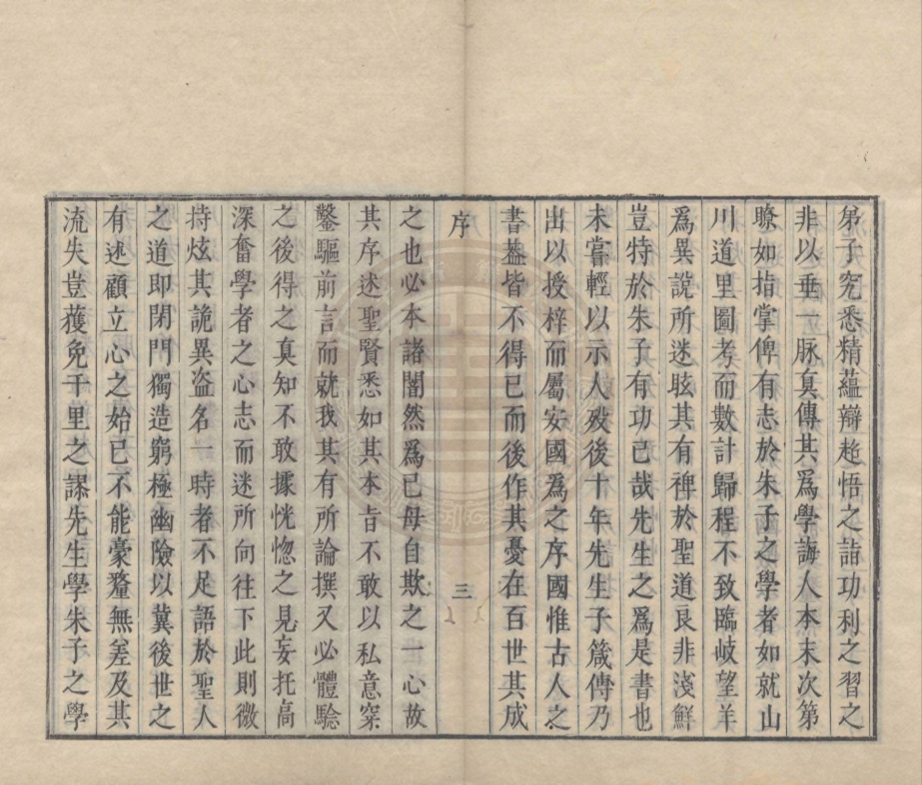 弟子究悉精蘊辯超悟之詣功利之習之
非以垂一脉真傳其爲學誨人本末次第
暸如指掌俾有志於朱子之學者如就山
川道里圖考而數計歸程不致臨岐望羊
爲異說所迷眩其有裨於聖道良非淺鮮
豈特於朱子有功已哉先生之爲是書也
未嘗輕以示人歿後十年先生子箴傳乃
出以授梓而屬安國爲之序國惟古人之
書葢皆不得已而後作其憂在百世其成
序
三
之也必本諸闇然爲已毋自欺之一心故
其序述聖賢悉如其本旨不敢以私意穿
鑿驅前言而就我其有所論撰又必體驗
之後得之真知不敢據恍惚之見妄托高
深奮學者之心志而迷所向往下此則微
持炫其詭異盗名一時者不足語於聖人
之道即閉門獨造窮極幽險以冀後世之
有述顧立心之始已不能豪釐無差及其
流失豈獲免千里之謬先生學朱子之學